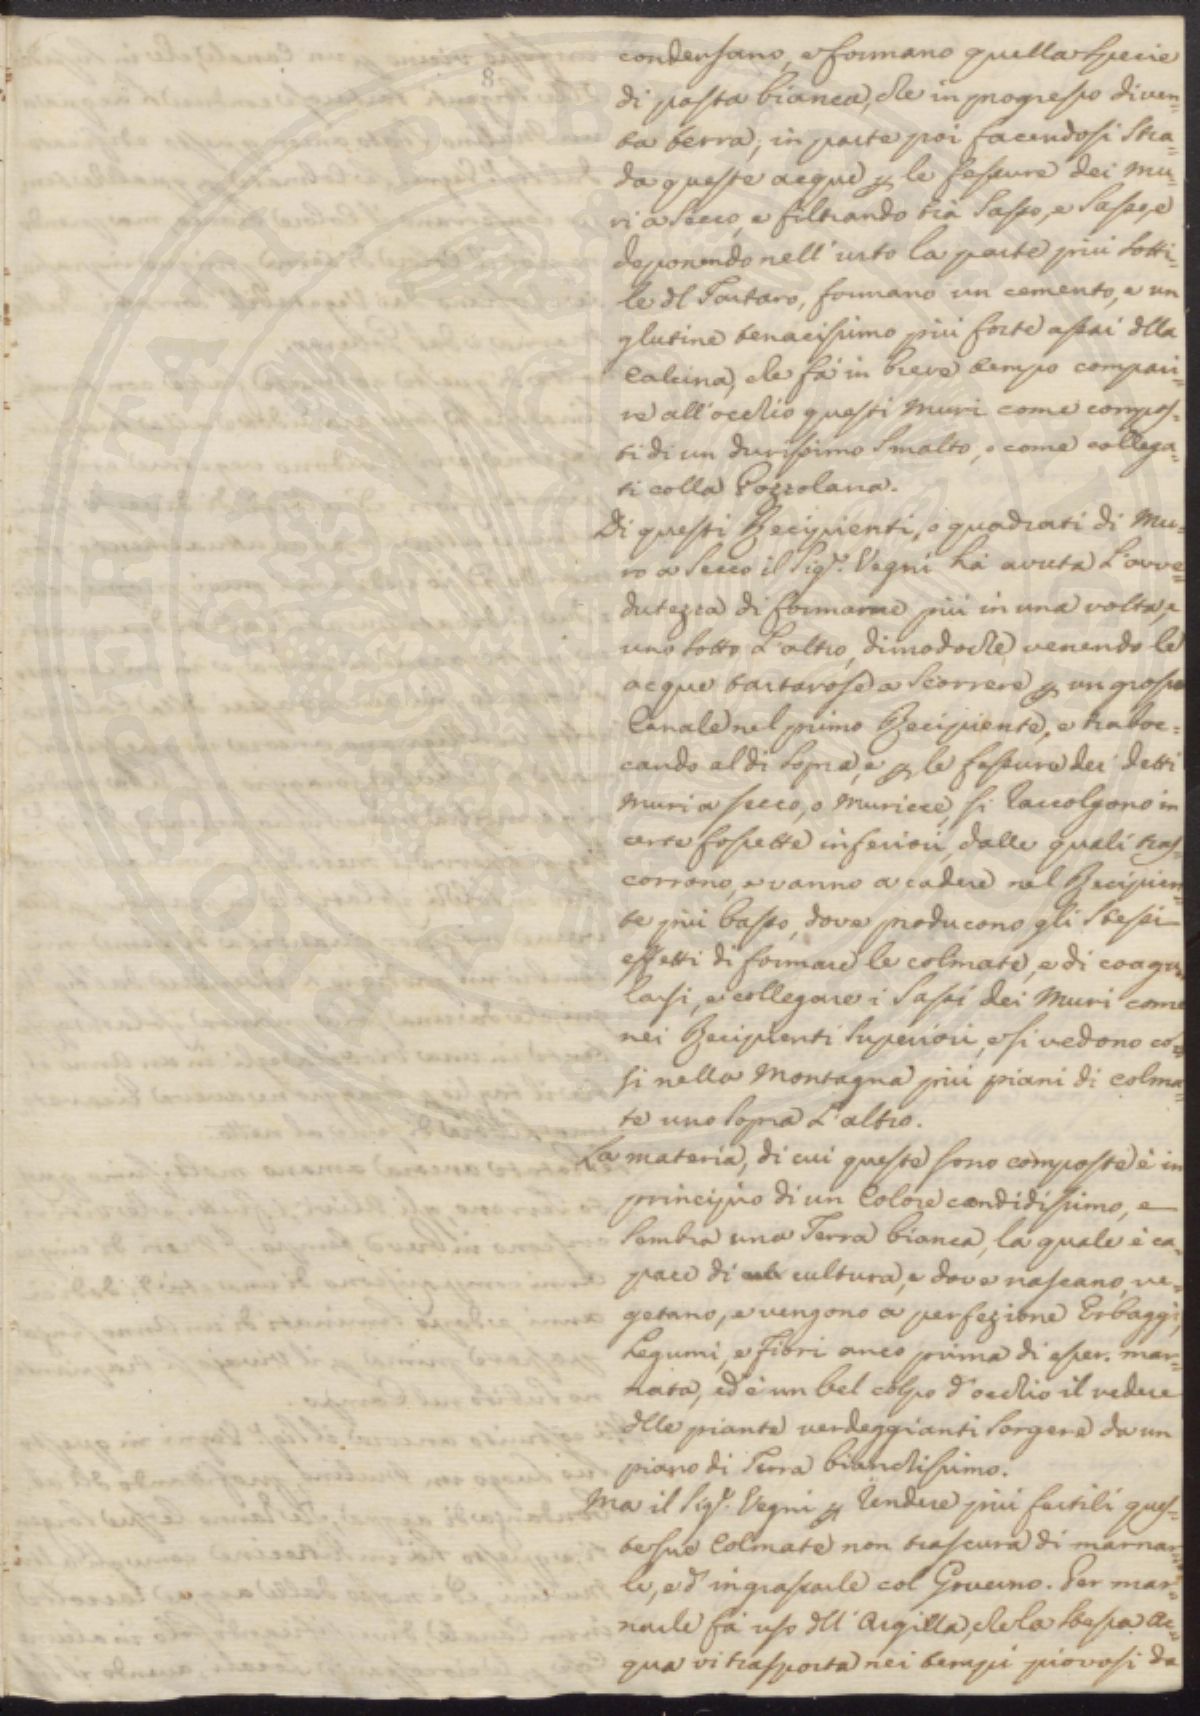 8
condensano, e formano quella specie
di pasta bianca, che in progresso diven=
ta terra; in parte poi facendosi Stra=
da queste acque p le fessure dei Mu=
ri a Secco, e filtrando trà Sasso, e Sasso, e
deponendo nell'urto la parte più Sotti=
le dl Tartaro, formano un cemento, e un
glutine tenacissimo più forte assai dlla
Calcina, che fà in breve tempo compari=
re all'occhio questi Muri come compos=
ti di un durissimo Smalto, o come collega=
ti colla Pozzolana.
Di questi Recipienti, o quadrati di Mu=
ro a Secco il Sigr. Vegni hà avuta L'avve=
dutezza di formarne più in una volta, e
uno Sotto L'altro, dimodochè venendo le
acque tartarose a Scorrere p un grosso
Canale nel primo Recipiente, e traboc=
cando al di Sopra, e p le fessure dei detti
Muri a secco, o Muricce, si raccolgono in
certe fossette inferiori, dalle quali tras=
corrono, e vanno a cadere nel Recipien=
te più basso, dove producono gli Stessi
effetti di formare le colmate, e di coagu=
larsi, e collegare i Sassi dei Muri come
nei Recipienti Superiori, e si vedono co=
si nella Montagna più piani di colma=
te uno Sopra L'altro.
La materia, di cui queste sono composte è in
principio di un Colore candidissimo, e
Sembra una Terra bianca, la quale è ca=
pace di cultura, e dove nascano, ve=
getano, e vengono a perfezione Erbaggi,
Legumi, e Fiori anco prima di esser mar=
nata, ed è un bel colpo d'occhio il vedere
dlle piante verdeggianti Sorgere da un
piano di Terra bianchissimo.
Ma il Sigr. Vegni p rendere più fertili ques=
te sue Colmate non trascura di marnar=
le, e d'ingrassarle col Governo. Per mar=
narle fà uso dll'Argilla, che la stessa Ac=
qua vi trasporta nei tempi piovosi da